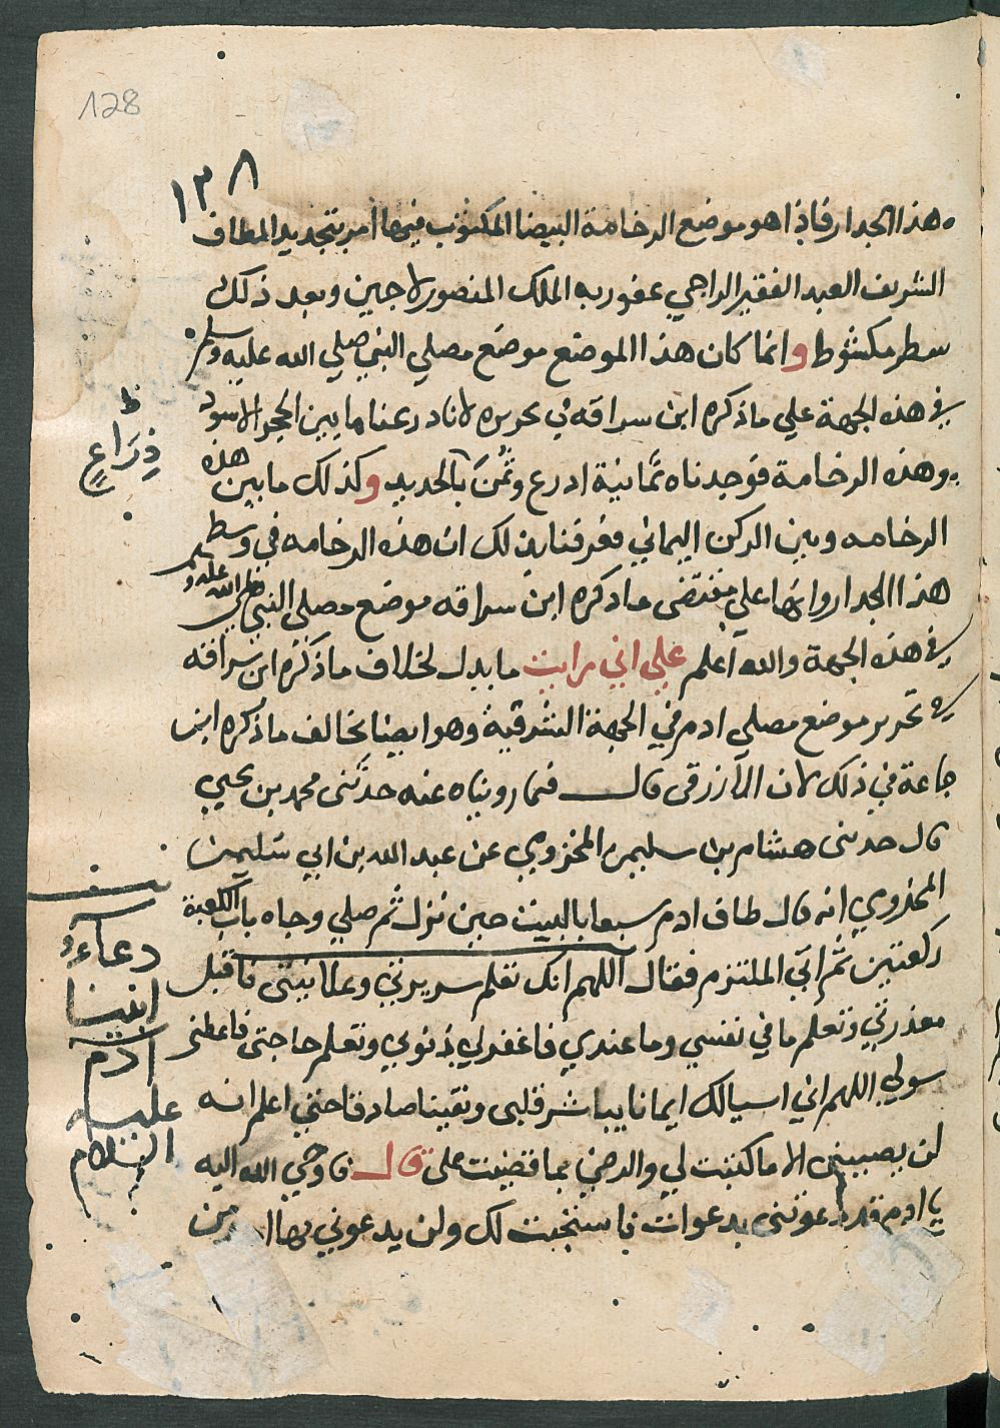 128
١٢٨
هذا الجدار فاذا هو موضع الرخامة البيضا المكتوب فيها امر بتجديد المطاف
الشريف العبد الفقير الراجي عفو ربه الملك المنصور لاجين وبعد ذلك
سطر مكشوط وانما كان هذا الموضع موضع مصلي النبي صلي الله عليه وسلم
في هذه الجهة علي ما ذكره ابن سراقه في تحريره لانا درعنا ما بين الحجر الاسود
وهذه الرخامة فوجدناه ثمانية ادرع وثمن بالحديد وكذلك ما بين هذه
الرخامه وبين الركن اليماني فعرفنا بذلك ان هذه الرخامه في وسط
هذا الجدار وانها علي مقتضى ما ذكره ابن سراقه موضع مصلي النبي صلى الله عليه وسلم
في هذه الجهة والله اعلم علي اني رايت ما يدل لخلاف ما ذكره ابن سراقه
في تحرير موضع مصلي ادم في الجهة الشرقية وهو ايضا يخالف ما ذكره ابن
جماعة في ذلك لان الازرقى قال فيما رويناه عنه حدثنى محمد بن يحيي
قال حدثنى هشام بن سليمن المخزومي عن عبد الله بن ابي سليمن
المخزومي انه قال طاف ادم سبعا بالبيت حين نزل ثم صلي وجاه باب الكعبة
ركعتين ثم اتي الملتزم فقال اللهم انك تعلم سريرتي وعلانيتى فاقبل
معذرتي وتعلم ما في نفسي وما عندي فاغفر لي ذنوبي وتعلم حاجتى فاعطنى
سولي اللهم اني اسيالك ايمانا يباشر قلبى ويقينا صادقا حتي اعلم انه
لن يصيبنى الا ما كتبت لي والرضي بما قضيت على قال فاوحي الله اليه
يا ادم قد دعوتنى بدعوات فاستجبت لك ولن يدعوني بها ا من
ظ
ذِرَاعٍ
دعآءُ
ابينا
آدم
عليه
السلام